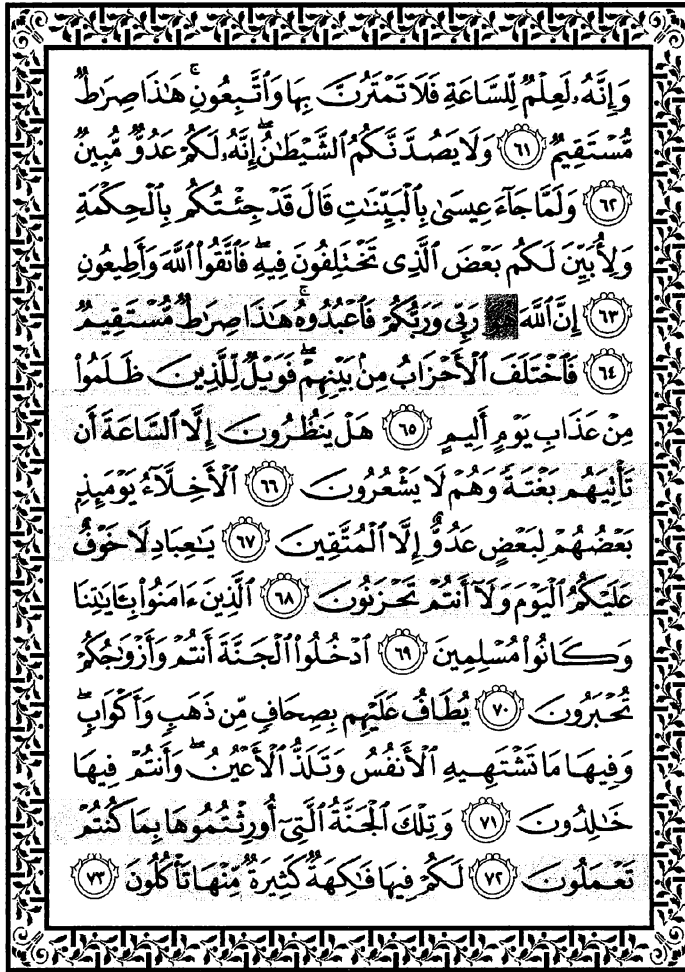 وَإِنَّهُۥ لَعِلْمٌ لِّلسَّاعَةِ فَلَا تَمْتَرُنَّ بِهَا وَٱتَّبِعُونِ ۚ هَٰذَا صِرَٰطٌ
مُّسْتَقِيمٌ ٦١ وَلَا يَصُدَّنَّكُمُ ٱلشَّيْطَٰنُ ۖ إِنَّهُۥ لَكُمْ عَدُوٌّ مُّبِينٌ
٦٢ وَلَمَّا جَآءَ عِيسَىٰ بِٱلْبَيِّنَٰتِ قَالَ قَدْ جِئْتُكُم بِٱلْحِكْمَةِ
وَلِأُبَيِّنَ لَكُم بَعْضَ ٱلَّذِى تَخْتَلِفُونَ فِيهِ ۖ فَٱتَّقُوا۟ ٱللَّهَ وَأَطِيعُونِ
٦٣ إِنَّ ٱللَّهَ رَبِّى وَرَبُّكُمْ فَٱعْبُدُوهُ ۚ هَٰذَا صِرَٰطٌ مُّسْتَقِيمٌ
٦٤ فَٱخْتَلَفَ ٱلْأَحْزَابُ مِنۢ بَيْنِهِمْ ۖ فَوَيْلٌ لِّلَّذِينَ ظَلَمُوا۟
مِنْ عَذَابِ يَوْمٍ أَلِيمٍ ٦٥ هَلْ يَنظُرُونَ إِلَّا ٱلسَّاعَةَ أَن
تَأْتِيَهُم بَغْتَةً وَهُمْ لَا يَشْعُرُونَ ٦٦ ٱلْأَخِلَّآءُ يَوْمَئِذٍۭ
بَعْضُهُمْ لِبَعْضٍ عَدُوٌّ إِلَّا ٱلْمُتَّقِينَ ٦٧ يَٰعِبَادِ لَا خَوْفٌ
عَلَيْكُمُ ٱلْيَوْمَ وَلَآ أَنتُمْ تَحْزَنُونَ ٦٨ ٱلَّذِينَ ءَامَنُوا۟ بِـَٔايَٰتِنَا
وَكَانُوا۟ مُسْلِمِينَ ٦٩ ٱدْخُلُوا۟ ٱلْجَنَّةَ أَنتُمْ وَأَزْوَٰجُكُمْ
تُحْبَرُونَ ٧٠ يُطَافُ عَلَيْهِم بِصِحَافٍ مِّن ذَهَبٍ وَأَكْوَابٍ ۖ
وَفِيهَا مَا تَشْتَهِيهِ ٱلْأَنفُسُ وَتَلَذُّ ٱلْأَعْيُنُ ۖ وَأَنتُمْ فِيهَا
خَٰلِدُونَ ٧١ وَتِلْكَ ٱلْجَنَّةُ ٱلَّتِىٓ أُورِثْتُمُوهَا بِمَا كُنتُمْ
تَعْمَلُونَ ٧٢ لَكُمْ فِيهَا فَٰكِهَةٌ كَثِيرَةٌ مِّنْهَا تَأْكُلُونَ ٧٣